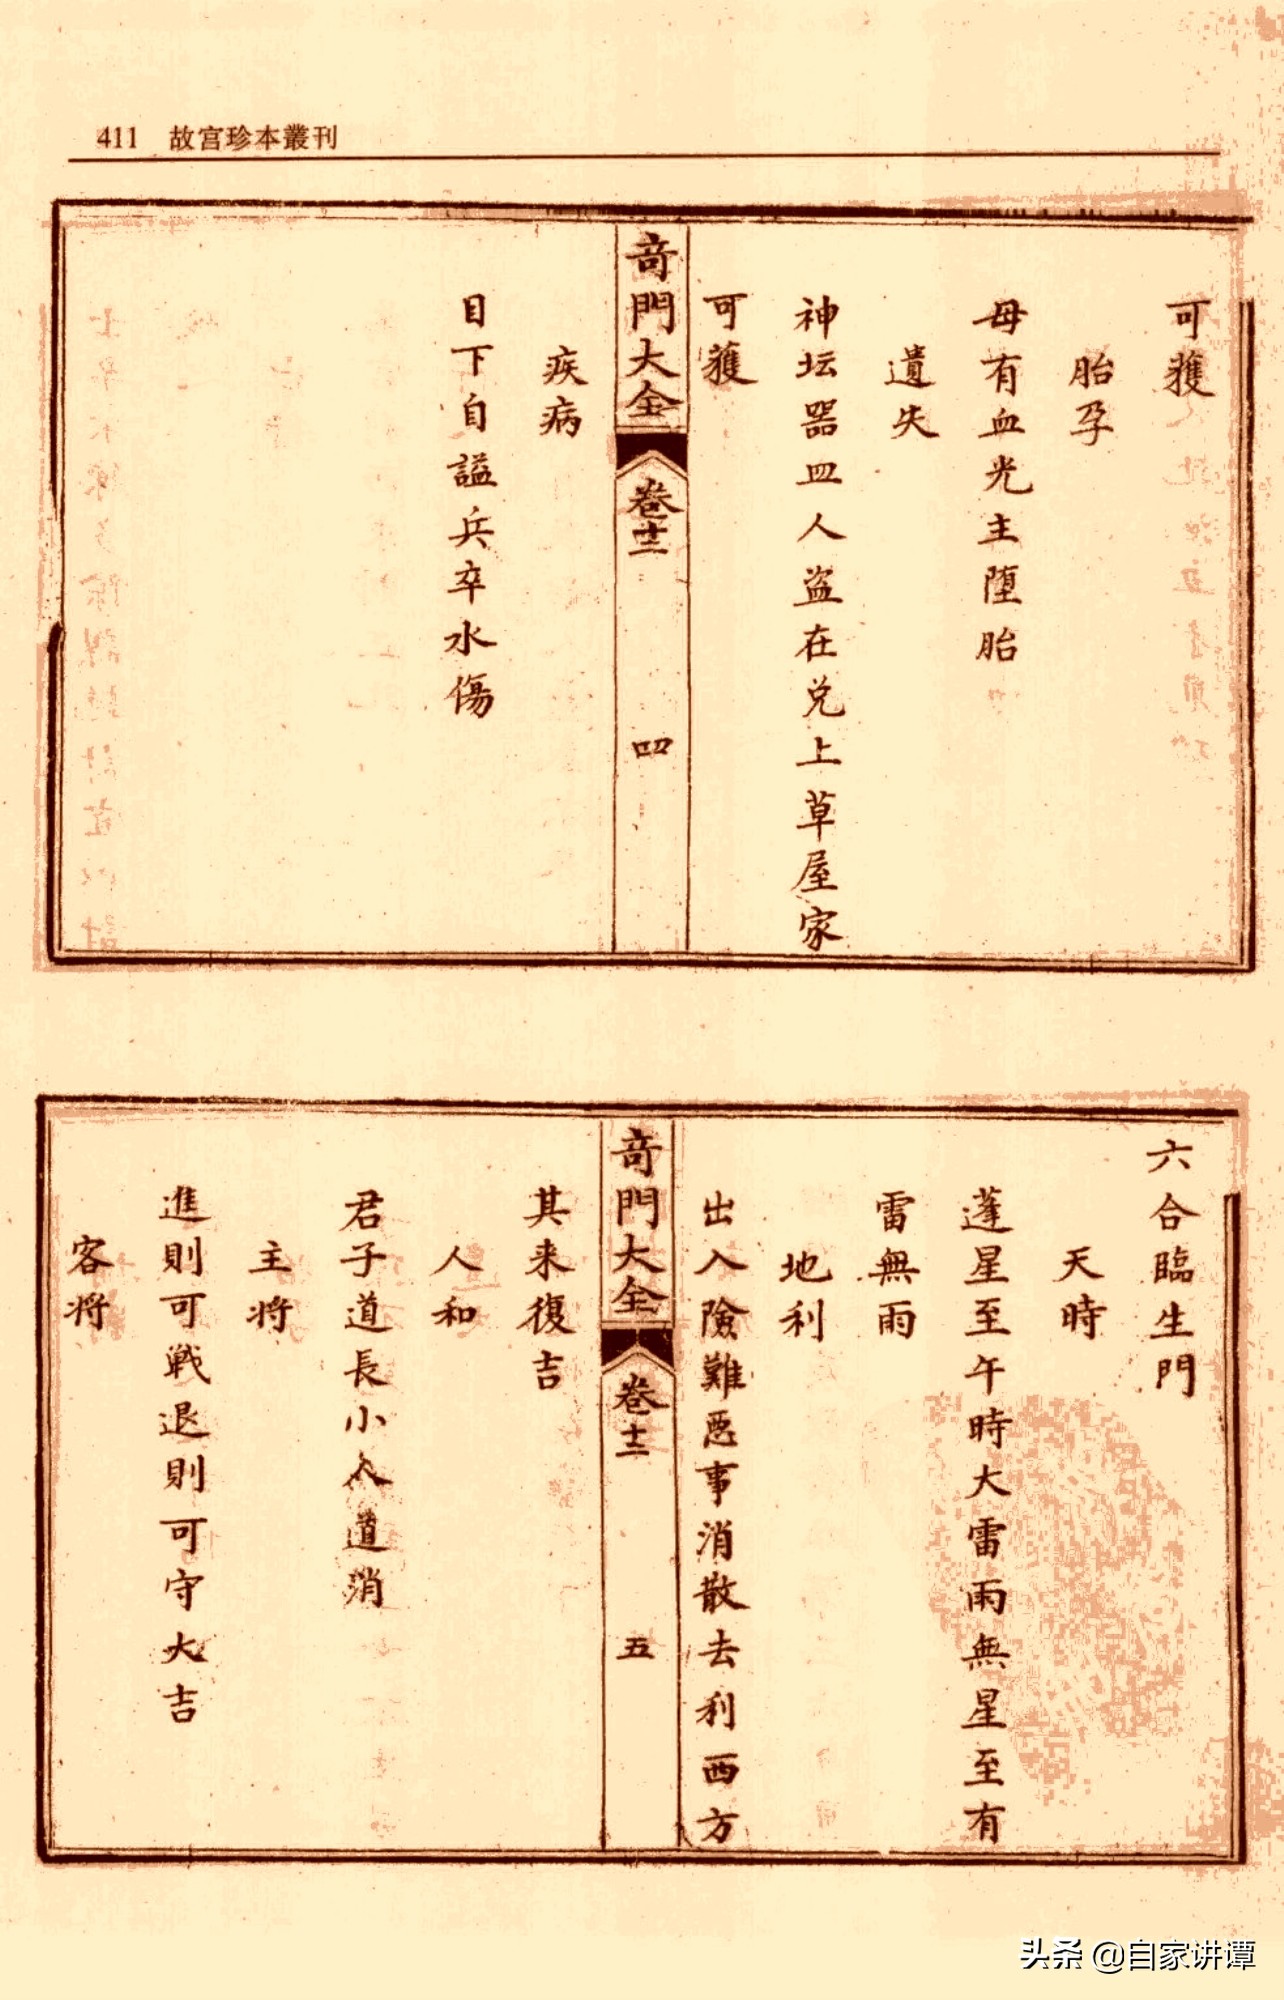 411 故宫珍本叢刊
可獲
胎孕
母有血光主墮胎
遺失
神坛器皿人盜在兌上草屋家
可獲
奇門大全 卷十二 四
疾病
目下自謚兵卒水傷
六合臨生門
天時
蓬星至午時大雷雨無星至有
雷無雨
地利
出入險難惡事消散去利西方
奇門大全 卷十二 五
其来復吉
人和
君子道長小人道消
主將
進則可戰退則可守大吉
客將
头条 @自家讲谭